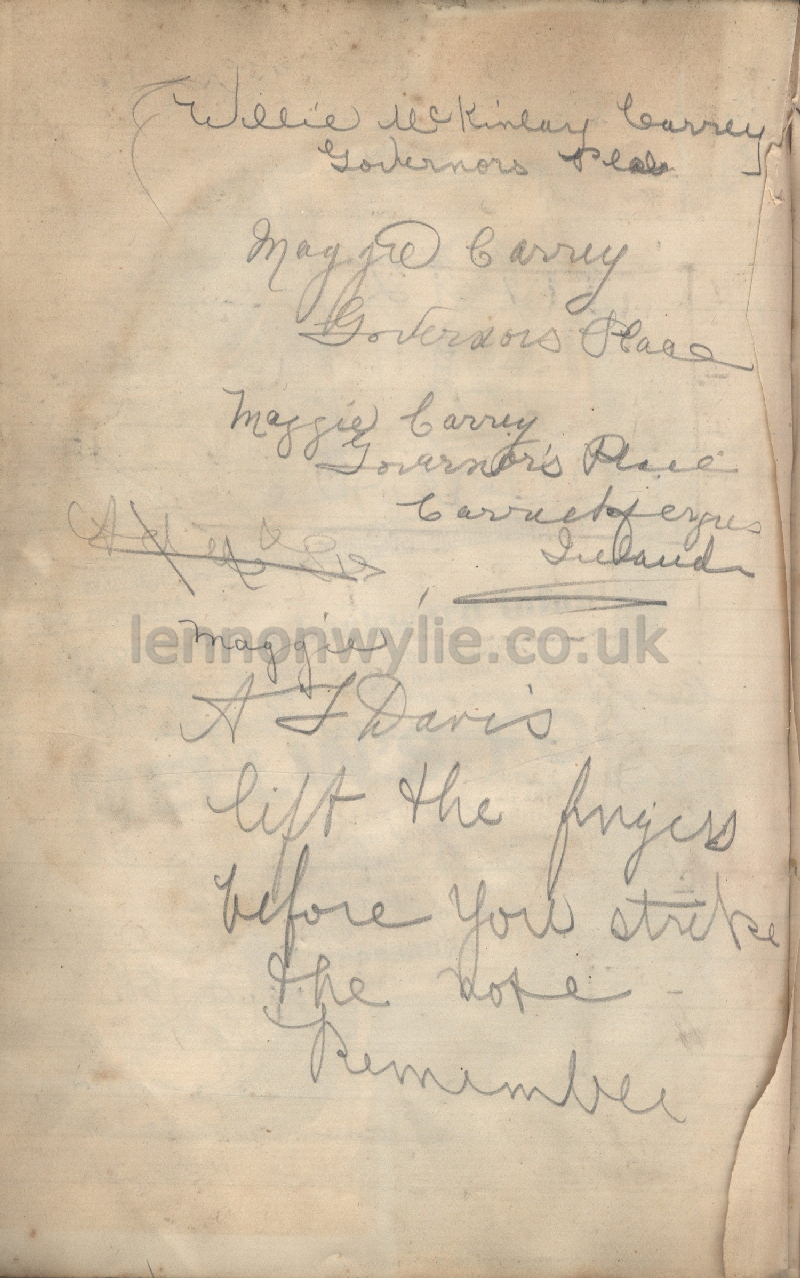 Willie McKinlay Carrey
Governors
Maggie Carrey
Governors Place
Maggie Carrey
Governor's Place
Carrickfergus
Ireland
lennonwylie.co.uk
Maggie
A T Davis
lift the fingers
before you strike
the note
Remember